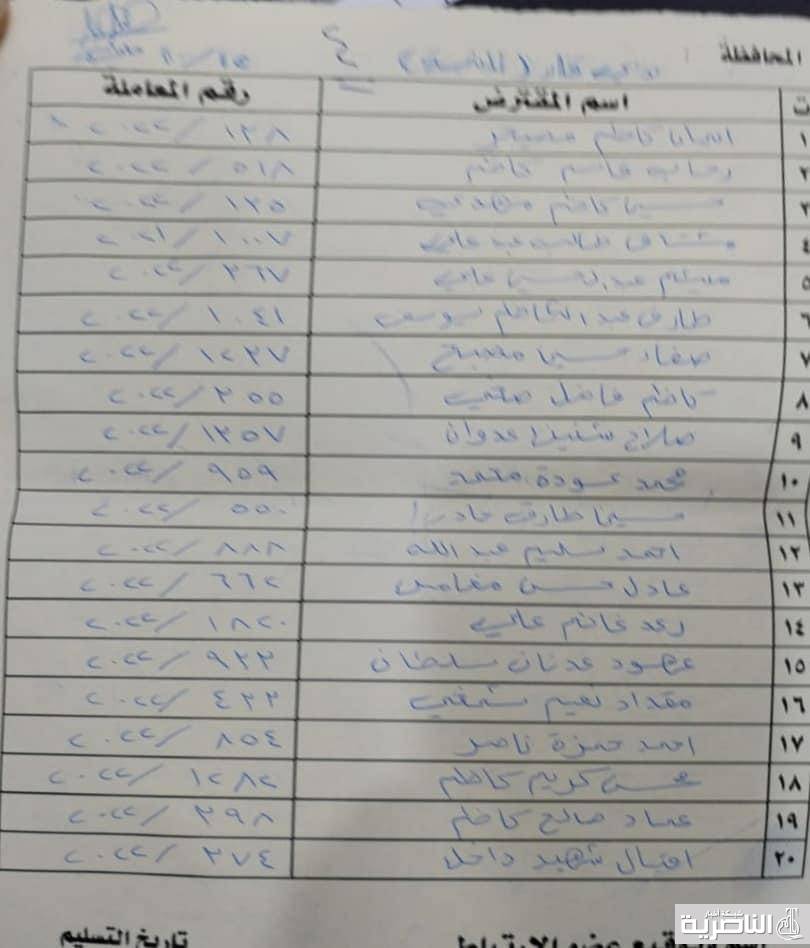 المحافظة
ت اسم المقترض رقم المعاملة
١ كاظم ١٣٨ / ٢٠٢٢
٢ رحاب قاسم كاظم ٥١٨ / ٢٠٢٢
٣ حسين كاظم مهدي ١٢٥ / ٢٠٢٢
٤ مشتاق طالب عبد علي ١٠٠٧ / ٢٠٢١
٥ عبد الحسين علي ٢٦٧ / ٢٠٢٢
٦ طارق عبد الكاظم يوسف ١٠٤١ / ٢٠٢٢
٧ صفاء حسين مصبح ١٢٣٧ / ٢٠٢٢
٨ كاظم فاضل ٣٥٥ / ٢٠٢٢
٩ صلاح عدوان ١٣٥٧ / ٢٠٢٢
١٠ محمد عودة ٩٥٩ / ٢٠٢٢
١١ حسين طارق ٥٥٠ / ٢٠٢٢
١٢ احمد سليم عبد الله ٨٨٨ / ٢٠٢٢
١٣ عادل حسن مغامس ٦٦٢ / ٢٠٢٢
١٤ رعد غانم علي ١٨٢٠ / ٢٠٢٢
١٥ عهود عدنان سلطان ٩٢٣ / ٢٠٢٢
١٦ مقداد نعيم ٤٣٣ / ٢٠٢٢
١٧ احمد حمزة ناصر ٨٥٤ / ٢٠٢٢
١٨ محسن كريم كاظم ١٢٨٢ / ٢٠٢٢
١٩ عماد صالح كاظم ٣٩٨ / ٢٠٢٢
٢٠ اقبال شهيد داخل ٣٧٤ / ٢٠٢٢
تاريخ التسليم
شبكة اخبار
الناصرية